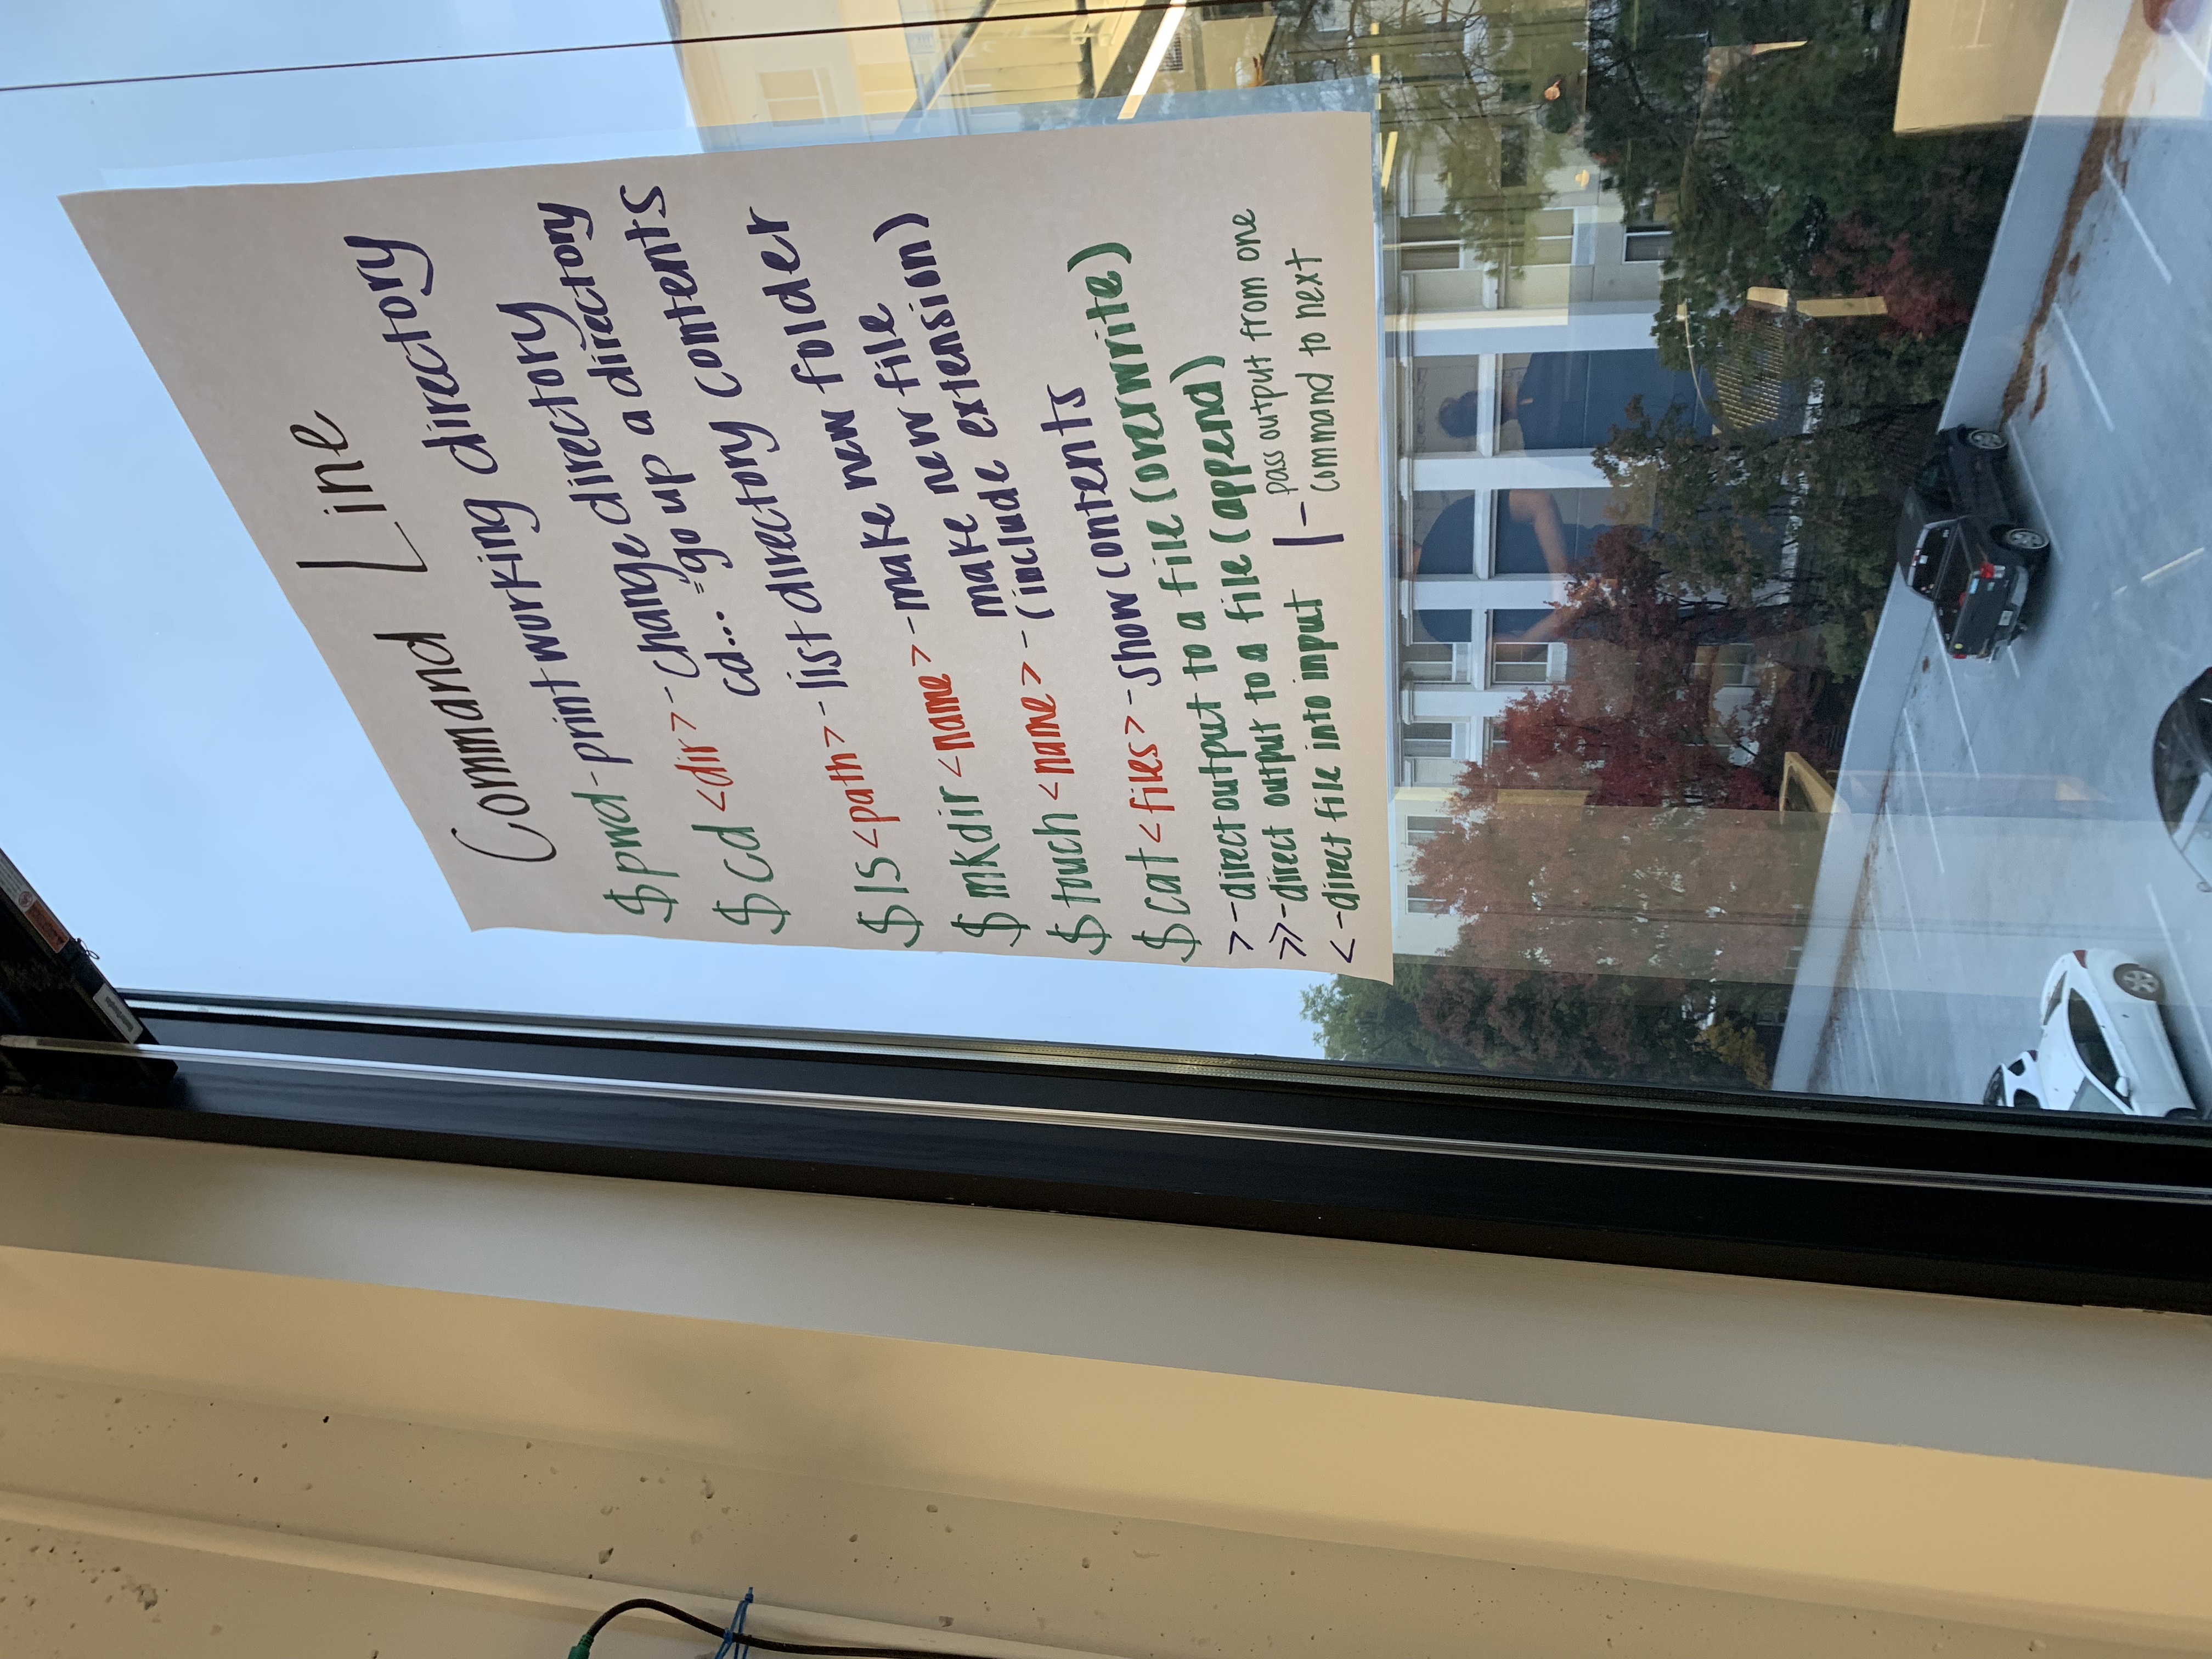 Command Line
$pwd-print working directory
$cd <dir> - change directory
cd... = go up a directory
$ls <path> - list directory contents
$mkdir <name> - make new folder
$touch <name> - make new file
(include extension)
$cat <files> - show contents
> - direct output to a file (overwrite)
>> - direct output to a file (append)
< - direct file into input
| - pass output from one
command to next